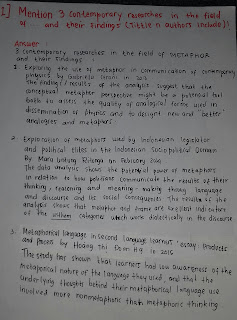 1] Mention 3 contemporary researches in the field
of and their findings (tittle n authors include))
Answer :
3 contemporary researches in the field of METAPHOR
and their findings :
1. Exploring the use of metaphor in communication of contemporary
physics by in 2015
The finding / results of the analysis suggest that the
conceptual metaphor perspective might be a potential tool
both to assess the quality of analogical forms used in
dissemination of physics and to designed new and better
analogies and metaphors
2. Exploration of metaphors used by Indonesian legislator
and political titles in the Indonesian Socio-political Domain
By in February 2020
The data analysis shows the potential power of metaphors
in relation to how politicians communicate the results of their
thinking, reasoning and meaning-making though language
and discourse and its social consequences. The results of the
analysis show that metaphor and jargon are important indicators
of the categories which work dialectically in the discourse
of
3. Metaphorical language in second language learners' essay : Products
and Process by Hoang Thi Doan Ha in 2015
The study has shown that learners had low awareness of the
metaphorical nature of the language they used, and that the
underlying thoughts behind their metaphorical language use
involved more nonmetaphoric than metaphoric thinking.